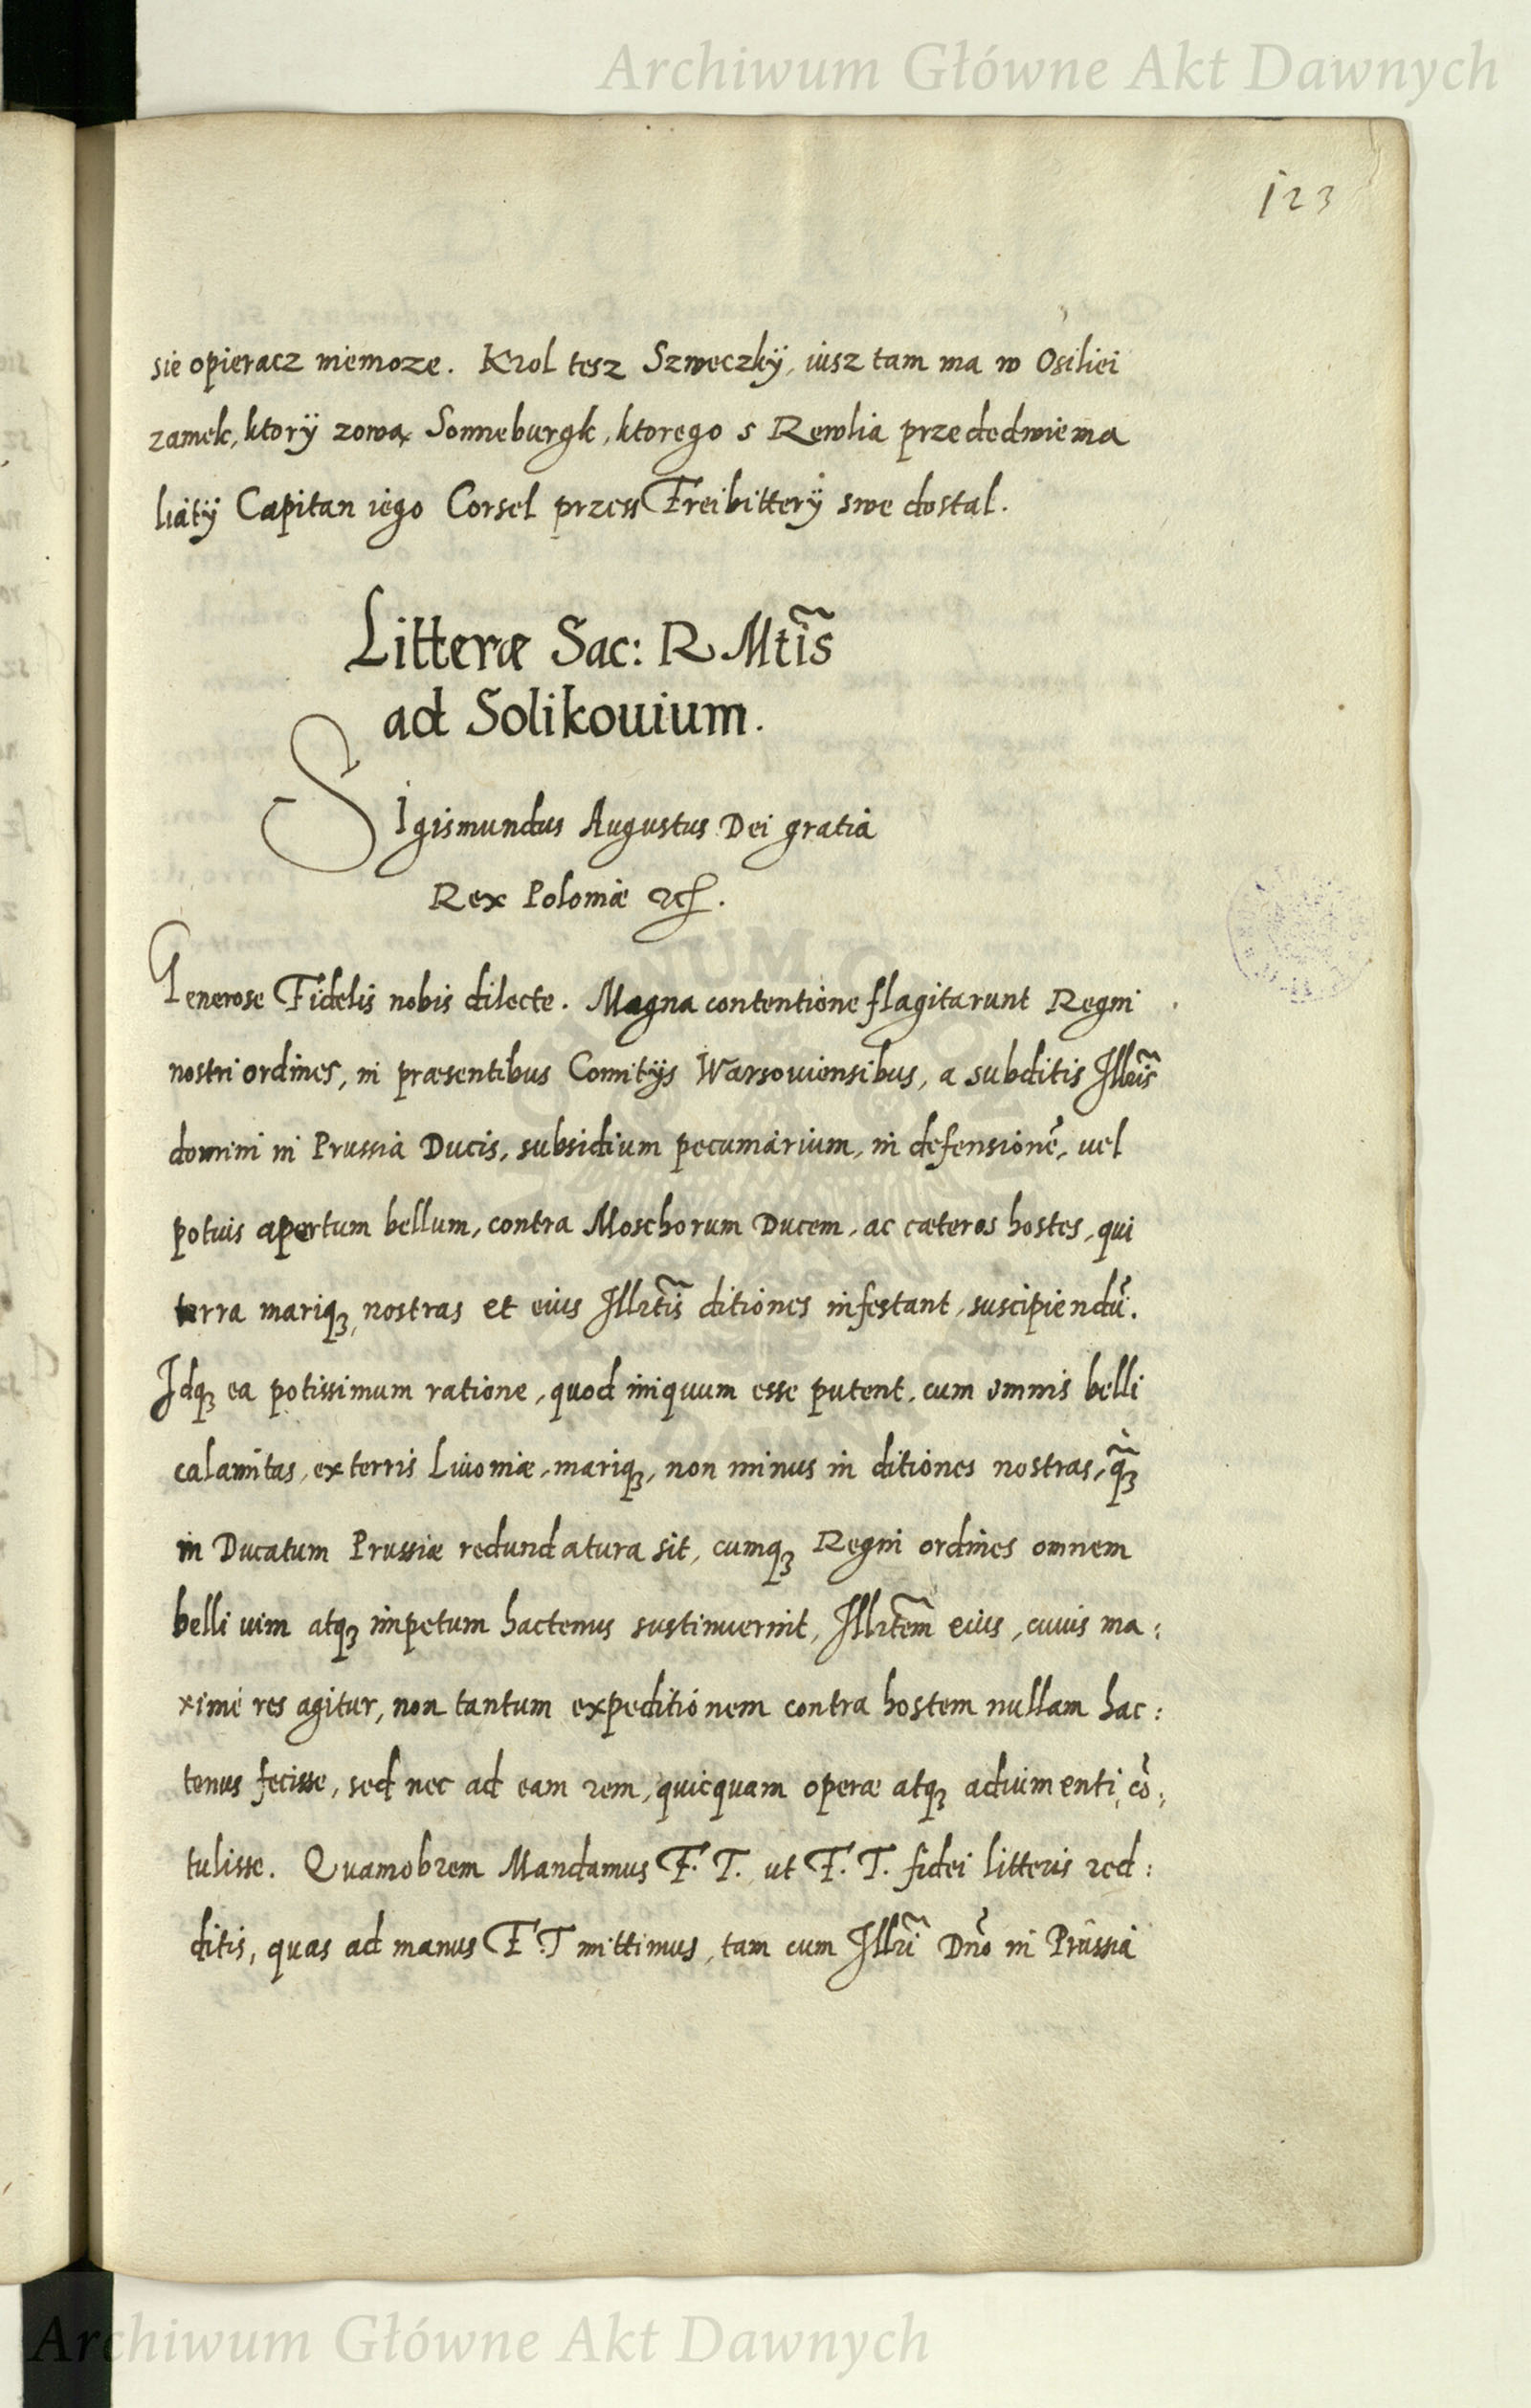 Archiwum Główne Akt Dawnych
123
sie opieracz niemoze. Krol tesz Szweczkÿ, iusz tam ma w Osiliei
zamek, ktorÿ zową Sonneburgk, ktorego s Rewlia przededwiema
liatÿ Capitan iego Corsel przess Freibitterÿ swe dostal.
Litteræ Sac: R Mtis̃
ad Solikouium.
Sigismundus Augustus Dei gratia
Rex Poloniæ ꝛc.
Generose Fidelis nobis dilecte. Magna contentione flagitarunt Regni
nostri ordines, in præsentibus Comitijs Warsouiensibus, a subditis Illris̃
domini in Prussia Ducis, subsidium pecuniarium, in defensionẽ, uel
potius apertum bellum, contra Moschorum Ducem, ac cæteros hostes, qui
terra mariqꝫ, nostras et eius Illrtis̃ ditiones infestant, suscipiendũ.
Idqꝫ ea potissimum ratione, quod iniquum esse putent, cum omnis belli
calamitas, ex terris Liuoniæ, mariqꝫ, non minus in ditiones nostras, q̃ꝫ
in Ducatum Prussiæ redundatura sit, cumqꝫ Regni ordines omnem
belli uim atqꝫ impetum hactenus sustinuerint, Illrtem̃ eius, cuius ma:
xime res agitur, non tantum expeditionem contra hostem nullam hac:
tenus fecisse, sed nec ad eam rem, quicquam operæ atqꝫ adiumenti, cõ:
tulisse. Quamobrem Mandamus F. T. ut F. T. fidei litteris red:
ditis, quas ad manus F. T mittimus, tam cum Illrĩ Dño in Prussia
Archiwum Główne Akt Dawnych